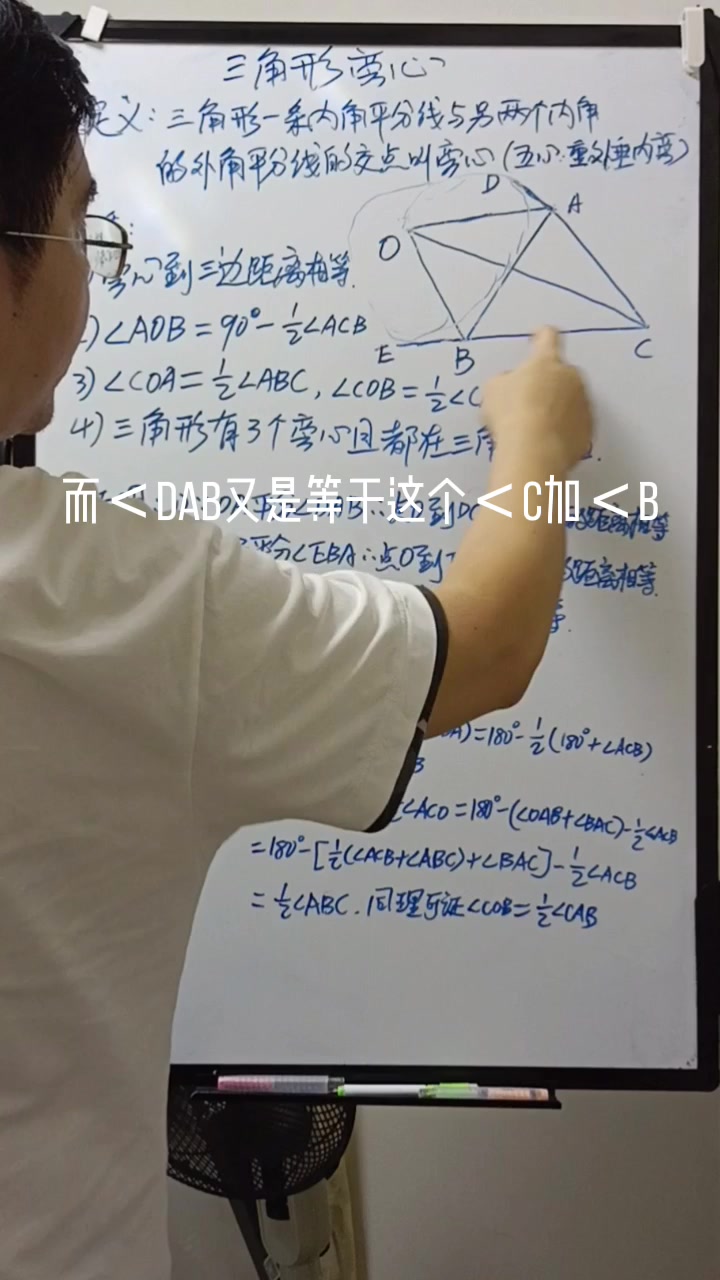 三角形旁心
定义：三角形一条内角平分线与另两个内角
的外角平分线的交点叫旁心（五心：重外垂内旁）
D A
O
E B C
旁心到三边距离相等.
∠AOB=90°-½∠ACB
3)∠COA=½∠ABC, ∠COB=½∠C
4)三角形有3个旁心且都在三角
而<DAB又是等于这个<C加<B
平分∠EBA∴点O到 距离相等.
)=180°-½(180°+∠ACB)
B
∠ACO=180°-(∠OAB+∠BAC)-½∠ACB
=180°-[½(∠ACB+∠ABC)+∠BAC]-½∠ACB
=½∠ABC.同理可证∠COB=½∠CAB